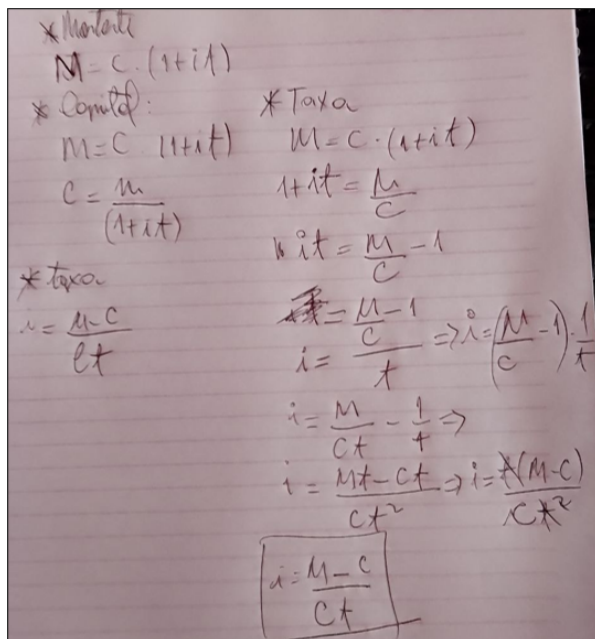 * Montante
M = C . (1+it)
* Capital:
M = C . (1+it)
C = m / (1+it)
* taxa
i = M-C / Ct
* Taxa
M = C . (1+it)
1+it = M / C
it = M / C - 1
= M / C - 1
i = / t => i = (M / C - 1) . 1 / t
i = M / Ct - 1 / t =>
i = Mt - Ct / Ct² => i = t(M-C) / Ct²
i = M - C / Ct